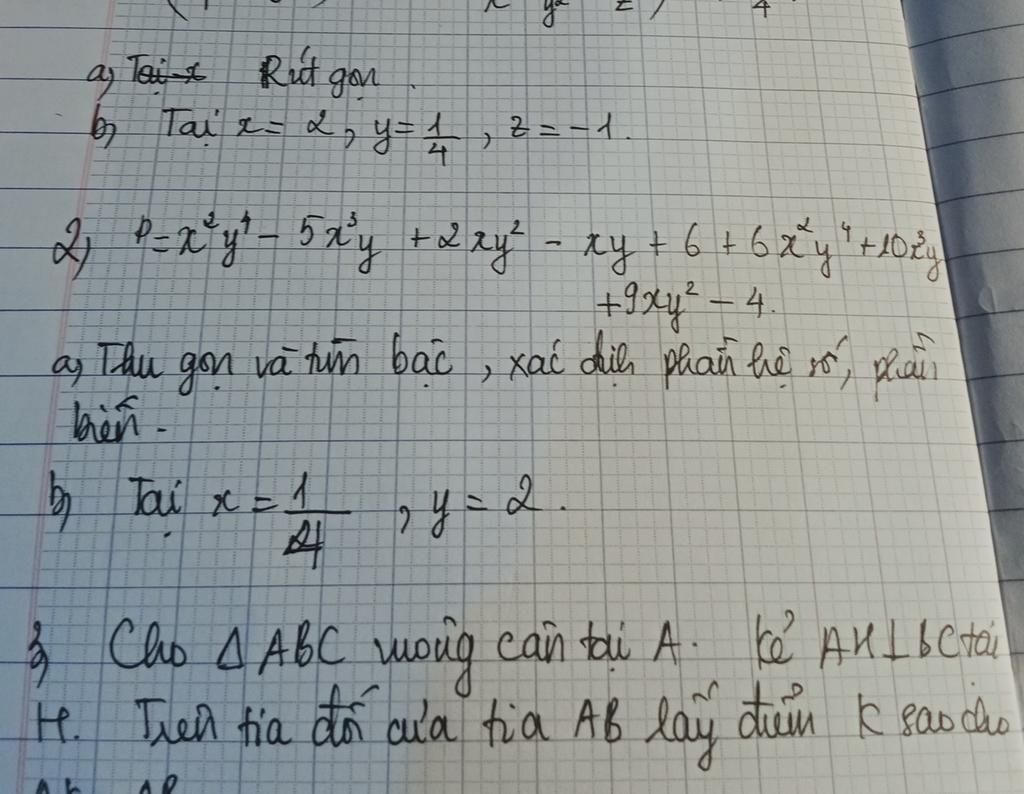 a) Rút gọn.
b) Tại x = 2, y = 1/4, z = -1.
2) P = x²y⁴ - 5x³y + 2xy² - xy + 6 + 6x²y⁴ + 10x³y
+ 9xy² - 4.
a) Thu gọn và tìm bậc, xác định phần hệ số, phần
biến.
b) Tại x = 1/4, y = 2.
3) Cho Δ ABC vuông cân tại A. Kẻ AH ⊥ BC tại
H. Trên tia đối của tia AB lấy điểm K sao cho